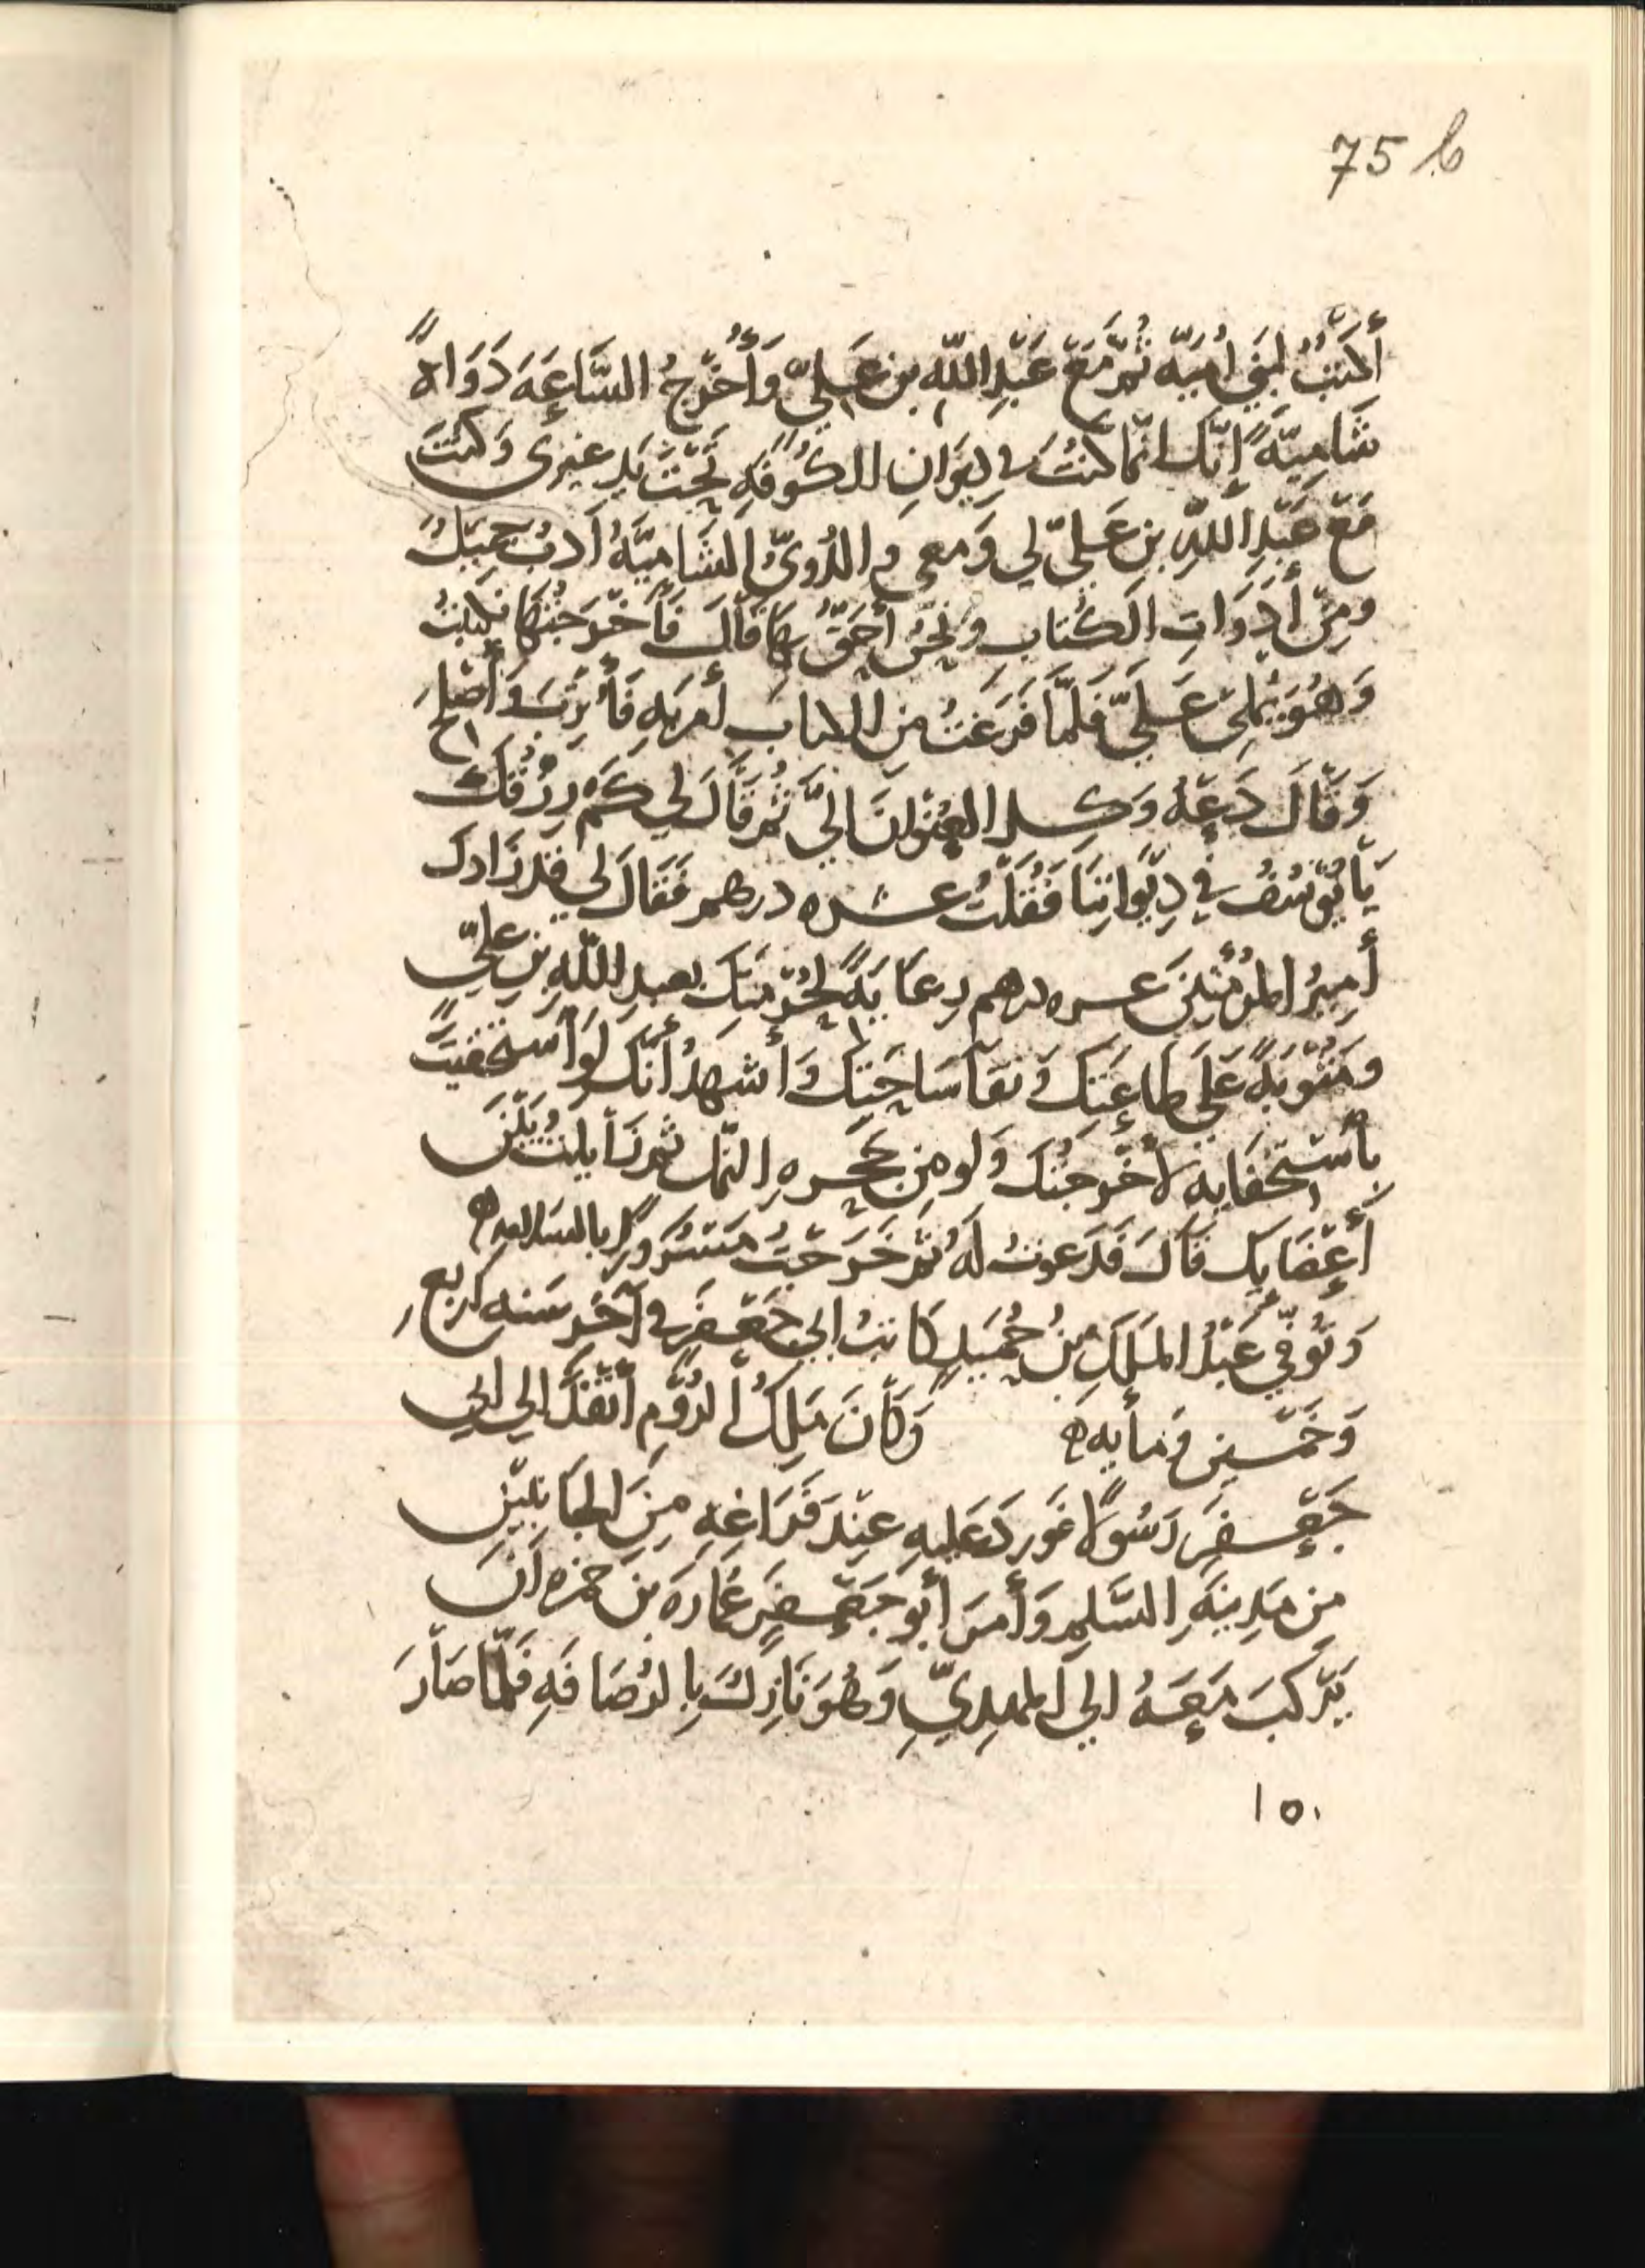 75 b
أَكْتُبُ لِبَنِي أُمَيَّه ثُمَّ مَعَ عَبْدِ اللّهِ بن عَلِيّ وَأُخْرِجُ السَّاعَةَ دَوَاةً
شَامِيَّةً إِنَّك انّما كنْتُ في دِيوَانِ الكُوفَةِ تَحْتَ يَدِ غيري وَكنتَ
مَعَ عَبْدِ اللّهِ بن عَلِيّ لي وَمعي و الدُّوِيُّ الشَّامِيَّةُ أَدبٌ جَميلٌ
ومِنْ أَدَوَاتِ الكُتابِ ونَحْنُ أحَقُّ بهَا قَالَ فَأَخْرَجْتُهَا فكتبْتُ
وَهُوَ يُمْلِي عَلَيَّ فَلَمَّا فَرَغْتُ مِن الكتابِ أمَر بهِ فَأُتْرِبَ وَأصْلحَ
وَقَالَ دَعْهُ وَكِلِ العُنْوَانَ الَيَّ ثُمَّ قَالَ لي كَمْ رِزْقُكَ
يَا يُوسُفُ في دِيوَانِنَا فَقُلْتُ عشره دراهم فَقَالَ لي قد زَادك
أَمِيرُ المُؤْمِنِينَ عسره دراهم رِعَايَةً لحُرْمَتِكَ بعبدِ اللّهِ بنِ عليّ
ومَثُوبَةً عَلَى طَاعَتِكَ وَنَقَا سَاحَتِكَ وَأَشهَدُ أَنَّك لَوِ ٱسْتَخْفَيْتَ
بِاسْتِخْفَايِه لأَخْرَجْتُكَ وَلَو مِن جُحْرهِ النّمل ثمَ زَايلتُ بَيْنَ
أَعْضَايِكَ قَالَ فَدَعوتُ لَهُ ثُمَّ خَرَجْتُ مَسْرُورًا بالسلامه ه
وَتُوُفِّيَ عَبْدُ المَلِكِ بْنُ حُمَيدٍ كَاتِبُ ابي جَعْفَرٍ في آخر سَنه أربع
وَخَمْسِين وَمايه ه وَكَانَ مَلِكُ الرُّومِ أَنْفَذَ إلى أبي
جَعْفَرٍ رَسُولًا فوردَ عَليهِ عِنْدَ فَرَاغِهِ مِنَ الجَانِبَيْنِ
مِن مَدِينَةِ السَّلم وَأَمَرَ أَبُو جَعْفَرٍ عُمَارَةَ بْنَ حمزه أَنْ
يَرْكَبَ مَعَهُ الي المهدِيِّ وَهُوَ نَازِلٌ بِالرُّصَافَةِ فَلَمَّا صَارَ
١٥٠